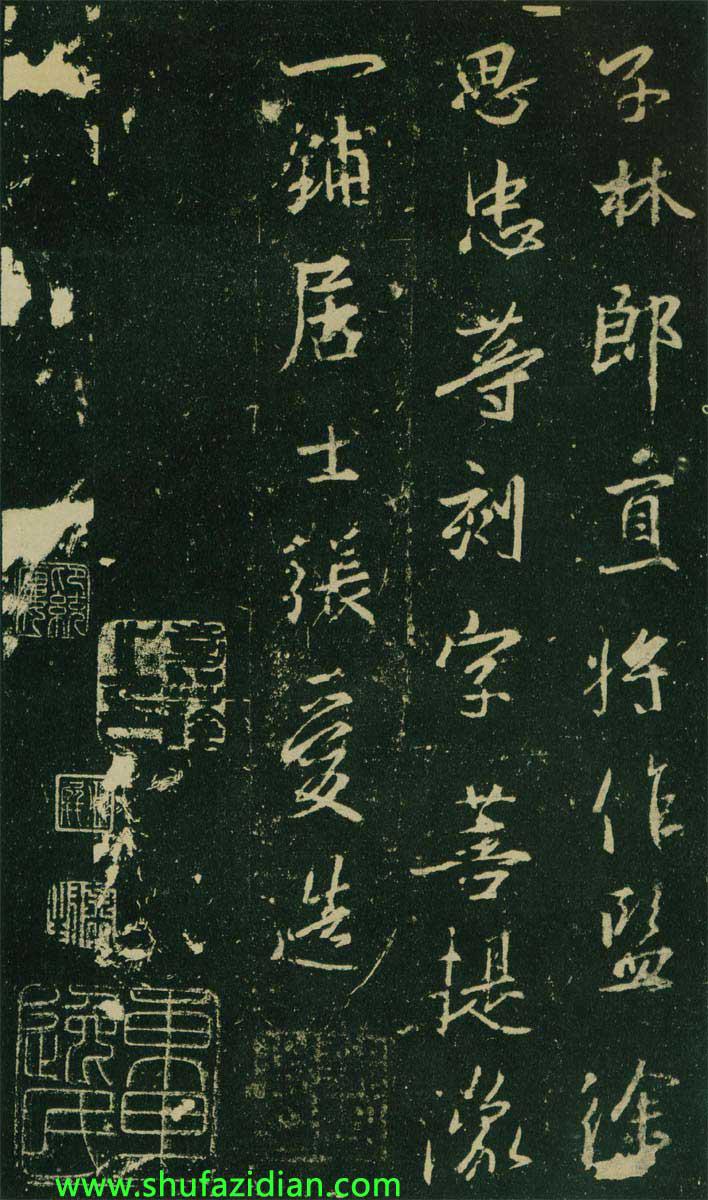 子林郎直將作監徐
思忠等刻字菩提像
一鋪居士張愛造
www.shufazidian.com